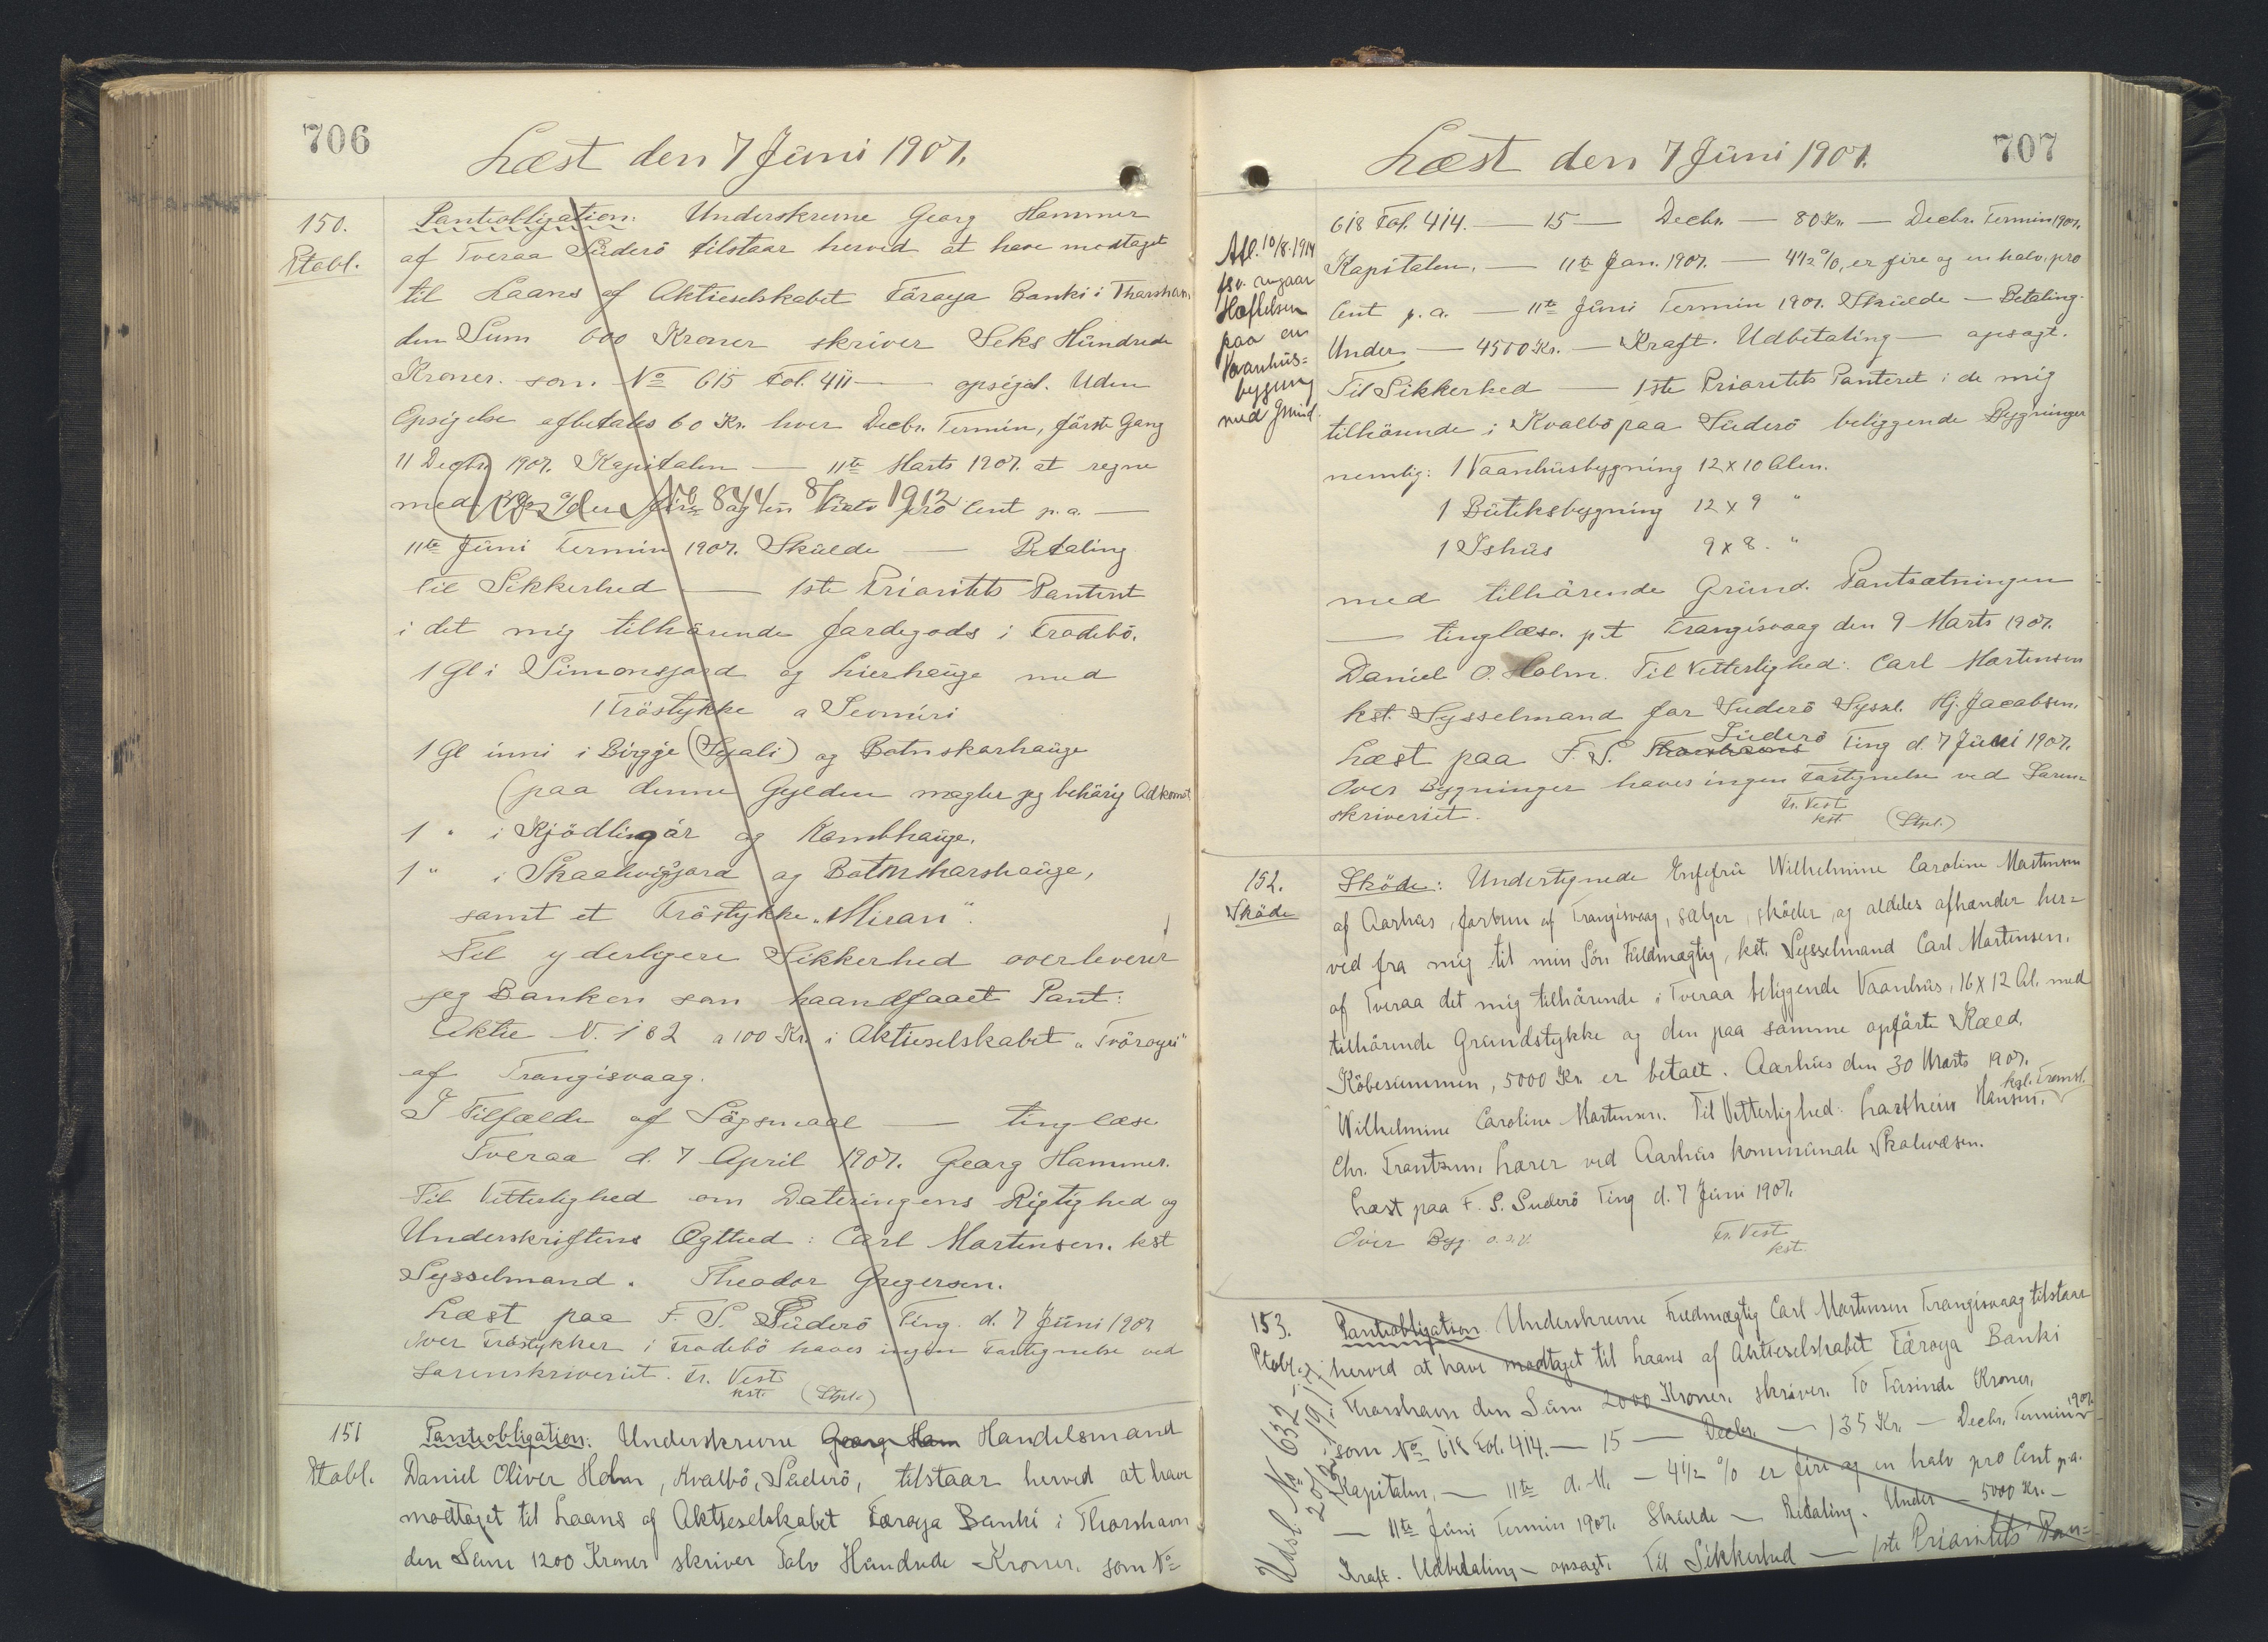 706
Læst den 7 Juni 1907.
150.
Ptobl.
Panteobligation. Underskrevne Georg Hammer
af Tveraa Suderö tilstaar herved at have modtaget
til Laans af Aktieselskabet Föroya Banki i Thorshavn
den Sum 600 Kroner skriver Seks Hundrede
Kroner. som No 615 Fol. 411 — opsigel. Uden
Opsigelse afbetales 60 Kr. hver Decbr. Termin, förste Gang
11 Decbr. 1907. Kapitalen — 11te Marts 1907. at regne
med 4½ % er fire og en halv pro Cent p.a. —
No 844 8/12 1912
11te Juni Termin 1907. Skulde — Betaling
Til Sikkerhed — 1ste Prioritets Panteret
i det mig tilhörende Jordegods i Frodebö.
1 Gl i Simonsjord og Lierhauge med
1 Tröstykke a Sevmiri
1 Gl inni i Birgje (Syali) og Botnskarhauge
(paa denne Gylden mangler jeg behörig Adkomst
1 " i Kjödlingár og Kambhauge,
1 " i Skaalvigsjord og Botnskarshauge,
samt et Tröstykke „Miran".
Til yderligere Sikkerhed overleverer
jeg Banken som haandfaaet Pant:
Aktie N. 182 a 100 Kr. i Aktieselskabet „Tvöroyri"
af Trangisvaag.
I Tilfælde af Sögsmaal — tinglæse
Tveraa d. 7 April 1907. Georg Hammer.
Til Vitterlighed om Dateringens Rigtighed og
Underskriftens Ægthed: Carl Mortensen. kst
Sysselmand. Theodor Gregersen.
Læst paa F. S. Suderö Ting. d. 7 Juni 1907
Over Tröstykker i Frodebö haves ingen Fortegnelse ved
Sorenskriveriet. Fr. Vest
kst. (Stpl.)
151
Ptobl.
Panteobligation. Underskrevne Georg Ham Handelsmand
Daniel Oliver Holm, Kvalbö, Suderö, tilstaar herved at have
modtaget til Laans af Aktieselskabet Föroya Banki i Thorshavn
den Sum 1200 Kroner skriver Tolv Hundrede Kroner. som No
707
Læst den 7 Juni 1907.
Afl. 10/8. 1914
fsv. angaar
Hæftelsen
paa en
Vaanhus=
bygning
med Grund.
618 Fol. 414. — 15 — Decbr. — 80 Kr. — Decbr. Termin 1907.
Kapitalen, — 11te Jan. 1907. — 4½ %, er fire og en halv, pro
Cent p. a. — 11te Juni Termin 1907. Skulde — Betaling.
Under — 4500 Kr. — Kraft. Udbetaling — opsagt.
Til Sikkerhed — 1ste Prioritets Panteret i de mig
tilhörende i Kvalbö paa Suderö beliggende Bygninger
nemlig: 1 Vaanhusbygning 12 x 10 Alen.
1 Butiksbygning 12 x 9 "
1 Ishus 9 x 8. "
med tilhörende Grund. Pantsætningen
— tinglæse. p.t Trangisvaag den 9 Marts 1907.
Daniel O. Holm. Til Vitterlighed: Carl Mortensen
kst. Sysselmand for Suderö Syssel. Hj. Jacobsen.
Læst paa F. S. Thorshavns Suderö Ting d. 7 Juni 1907.
Over Bygninger haves ingen Fortegnelse ved Soren=
skriveriet. Fr. Vest
kst. (Stpl.)
152.
Sköde
Sköde: Undertegnede Enkefru Wilhelmine Caroline Mortensen
af Aarhus, forhen af Trangisvaag, sælger, sköder og aldeles afhænder her=
ved fra mig til min Sön Fuldmægtig, kst. Sysselmand Carl Mortensen.
af Tveraa det mig tilhörende i Tveraa beliggende Vaanhus, 16 x 12 Al. med
tilhörende Grundstykke og den paa samme opförte Kæld.
Köbesummen, 5000 Kr. er betalt. Aarhus den 30 Marts 1907.
Wilhelmine Caroline Mortensen. Til Vitterlighed: Hansen, kgl. Transl.
Chr. Frantzen, Lærer ved Aarhus kommunale Skolevæsen.
Læst paa F. S. Suderö Ting d. 7 Juni 1907.
Over Byg. o.s.v. Fr. Vest
kst.
153.
Ptobl.
Udsl. No 632
Panteobligation. Underskrevne Fuldmægtig Carl Mortensen Trangisvaag tilstaar
herved at have modtaget til Laans af Aktieselskabet Föroya Banki
Thorshavn den Sum 2000 Kroner, skriver. To Tusinde Kroner,
som No 618 Fol. 414. — 15 — Decbr. — 135 Kr. — Decbr. Termin 1907.
Kapitalen, — 11te d. M. — 4½ % er fire og en halv pro Cent p.a.
— 11te Juni Termin 1907. Skulde — Betaling. Under — 5000 Kr. —
Kraft. Udbetaling — opsagt. Til Sikkerhed — 1ste Prioritets Pan=